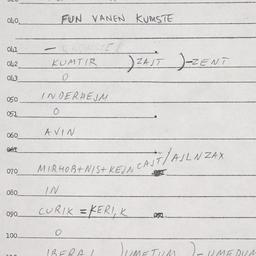 040. FUN VANEN KUMSTE
041 —
042 KUMTIR )ZAJT )-ZENT
043 O
050 INDERHEJM
051 O
060 AVIN
061
070 MIRHOB+NIS+KEJN CAJT/AJLNZAX
080 IN
090 CURIK =KERIK 091
100 O
IBERAL )UMETUM )-UMEDUM